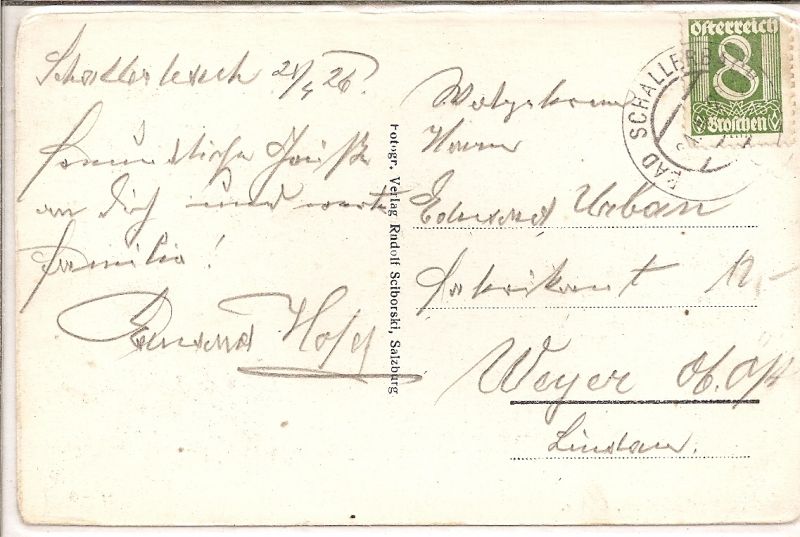 Schallerbach 21/4 26.
freundliche Grüße
an Dich und werte
Familie!
Eduard
Fotogr. Verlag Rudolf Sciborski, Salzburg
Österreich
8
Groschen
BAD SCHALLERB
Wohlgeboren
Herrn
Eduard Urban
Fabrikant
Weyer Ob. Öst
Lindau.